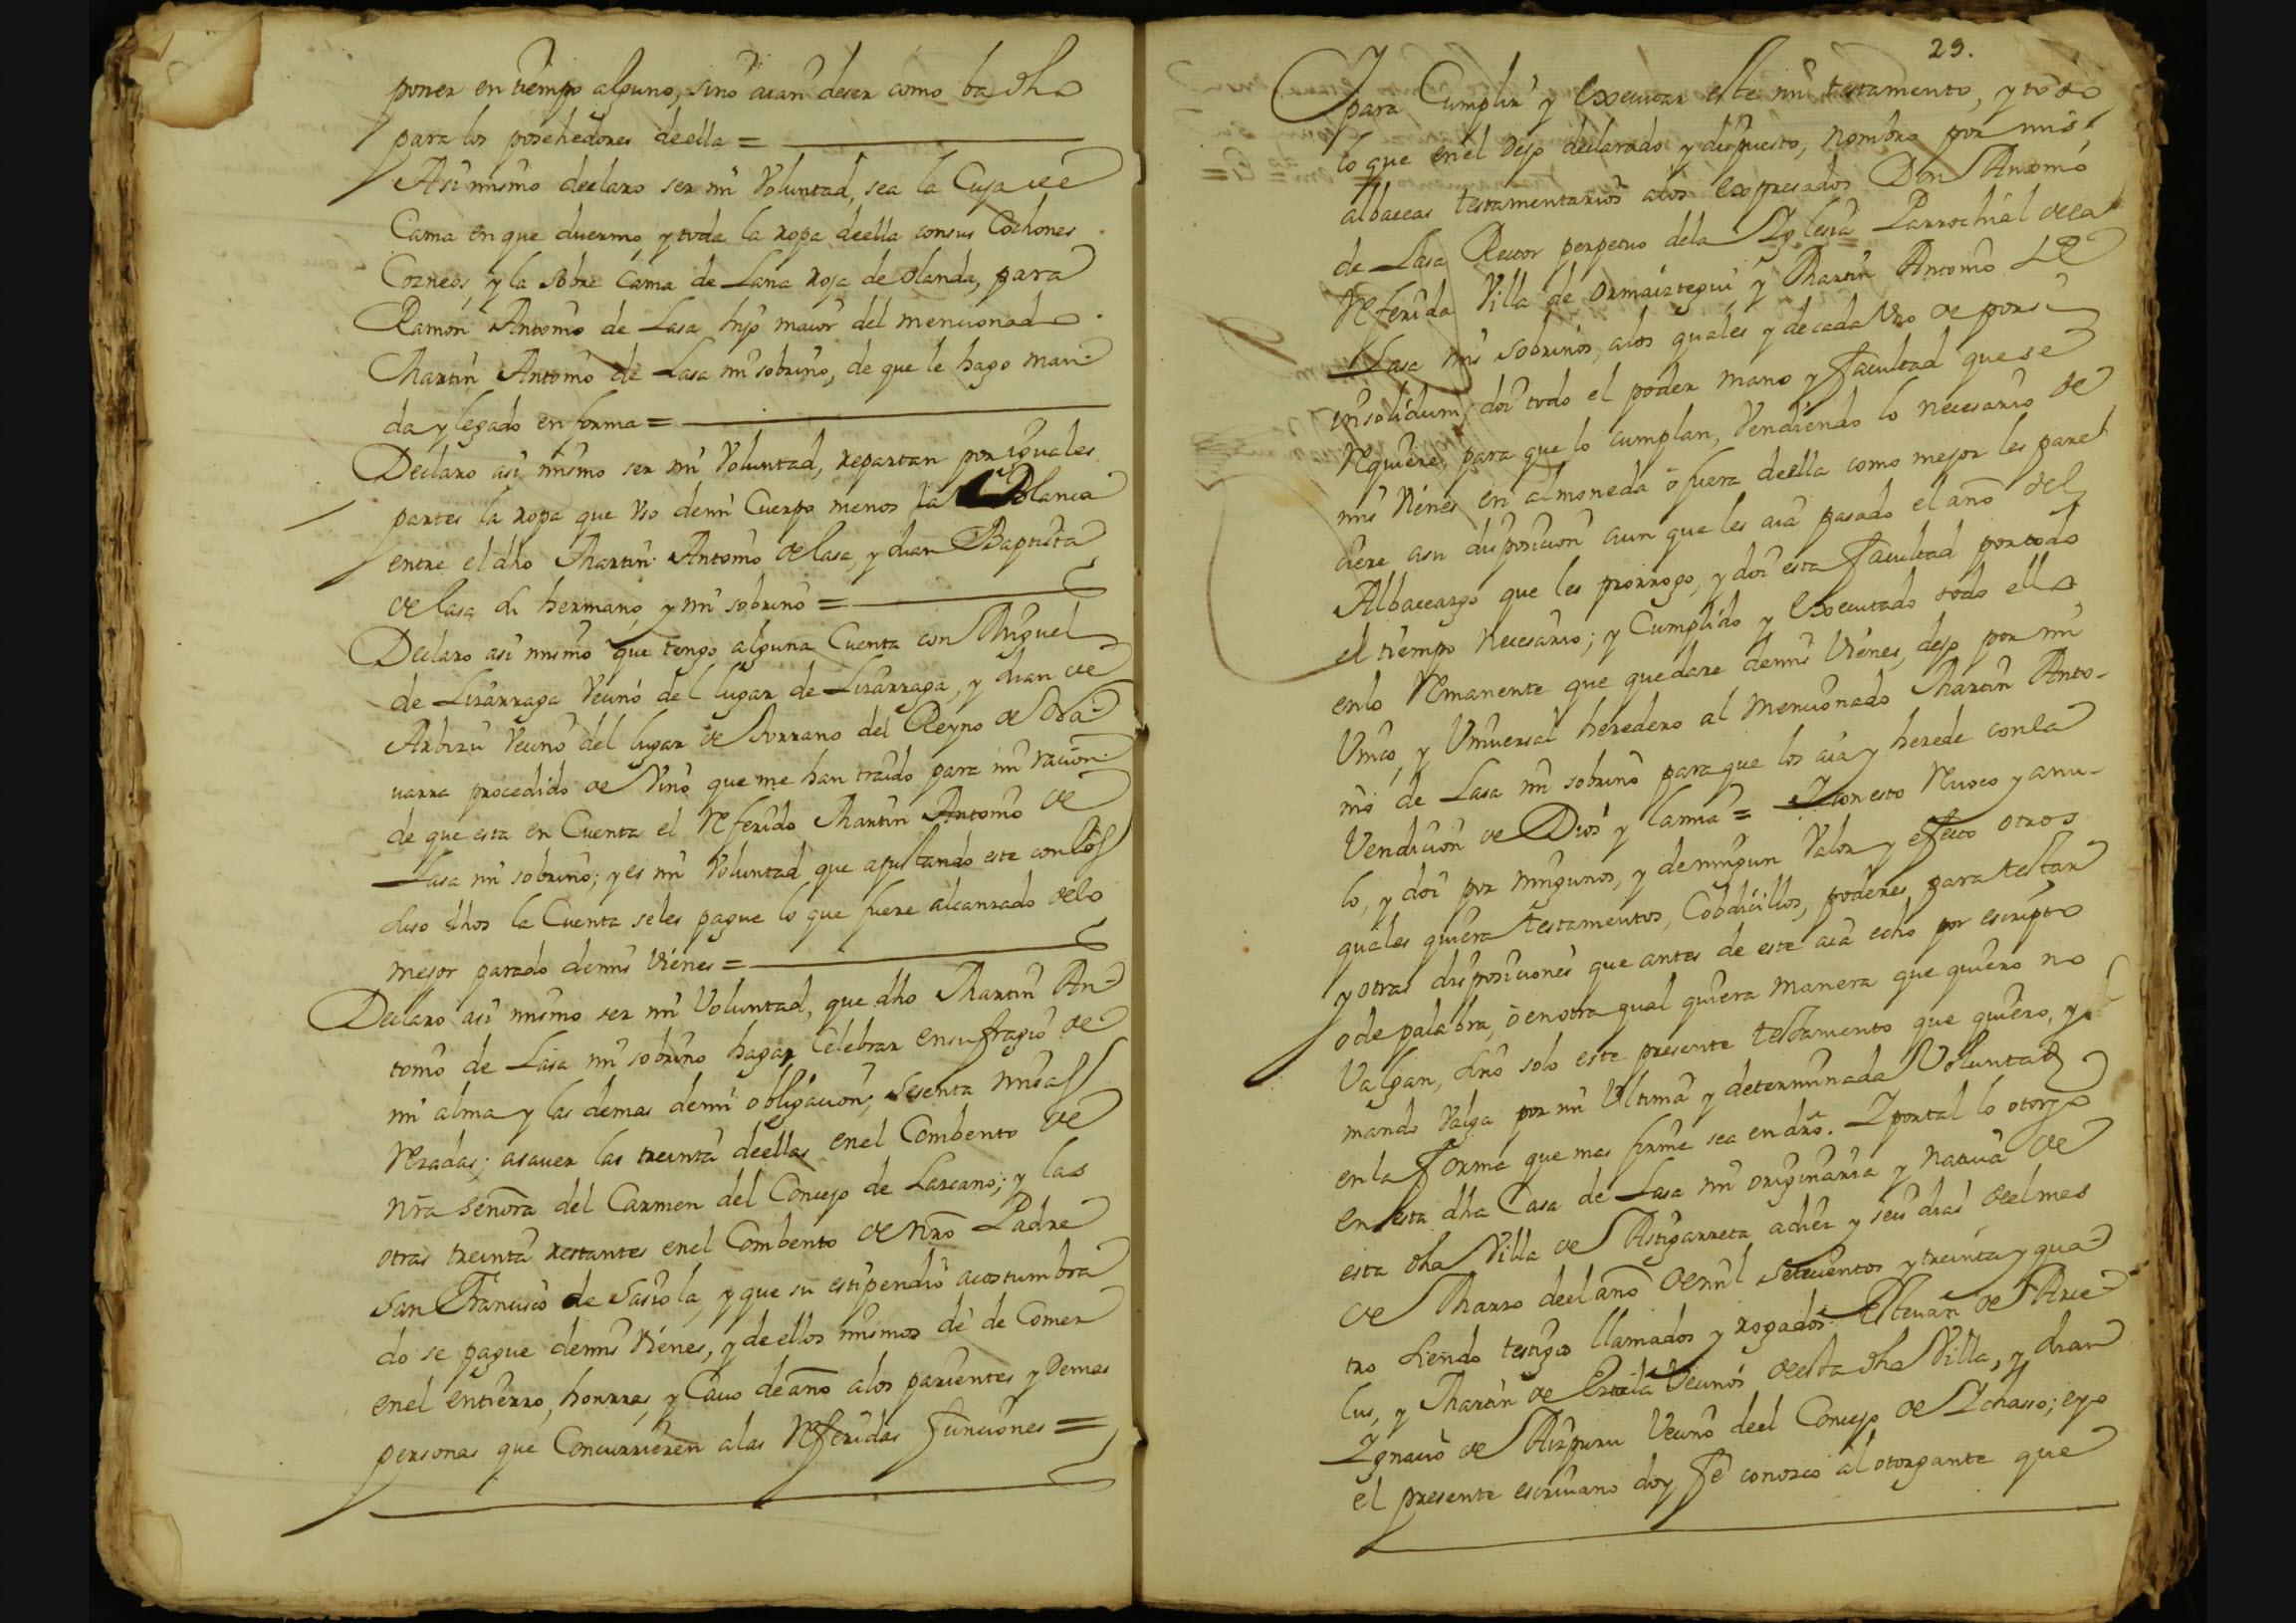 poner en tiempo alguno, sino aian deser como ba dho
para los posehedores deella =
Asi mismo declaro ser mi Voluntad, sea la Cuja de
Cama en que duermo, y toda la ropa deella consus Colchones
Cozneos, y la sobre Cama de Lana roja de olanda, para
Ramon Antonio de Lasa hijo maior del mencionado
Martin Antonio de Lasa mi sobrino, de que le hago man
da y legado en forma =
Declaro asi mismo ser mi Voluntad, repartan por iguales
partes la ropa que Vso demi Cuerpo menos la Blanca
entre el dho Martin Antonio de lasa, y Juan Baptista
de lasa su hermano, y mi sobrino =
Declaro asi mismo que tengo alguna Cuenta con Miguel
de Lizarraga Vecino del lugar de Lizarraga, y Juan de
Arbizu Vecino del lugar de Torrano del Reyno de Na
uarra procedido de Vino que me han traido para mi racion
de que esta en Cuenta el Referido Martin Antonio de
Lasa mi sobrino; y es mi Voluntad que ajustando este con los
suso dhos la Cuenta seles pague lo que fuere alcanzado delo
mejor parado demis Vienes =
Declaro asi mismo ser mi Voluntad, que dho Martin An
tonio de Lasa mi sobrino hagar Celebrar en sufragio de
mi alma y las demas demi obligacion; sesenta misas
Rezadas; asauer las treinta deellas enel Combento de
nra señora del Carmen del Concejo de Lazcano; y las
otras treinta restantes enel Combento de nro Padre
San Francisco de Sasiola, y que su estipendio acostumbra
do se pague demis Vienes, y de ellos mismos dé de Comer
enel entierro, honrras, y Cauo deaño alos parientes y Demas
personas que Concurrieren alas Referidas funciones =
29.
Ypara Cumplir y Executar este mi testamento, y todo
lo que enel dejo declarado y dispuesto, nombro por mis
albaceas testamentarios alos expresados Don Antonio
de Lasa Rector perpetuo dela Yglesia Parrochial dela
Referida Villa de Ormaiztegui, y Martin Antonio de
Lasa mis sobrinos, alos quales y de cada Vno de porsi
ynsolidum, doi todo el poder mano y facultad que se
Requiere, para que lo cumplan, Vendiendo lo necesario de
mis Vienes en almoneda ó fuera deella como mejor les pare
ciere asu disposicion aun que les aia pasado el año del
Albaceazgo que les prorrogo, y doi esta facultad por todo
el tiempo necesario; y Cumplido y Executado todo ello
enlo Remanente que quedare demis Vienes, dejo por mi
Vnico, y Vniversal heredero al mencionado Martin Anto-
nio de Lasa mi sobrino para que los aia y herede conla
Vendicion de Dios y lamia = Y con esto Reuoco y anu-
lo, y doi por ningunos, y deningun Valor y efecto otros
quales quiera testamentos, Cobdicillos, poderes para testar
y otras disposiciones que antes de este aia echo por escripto
ode palabra, ó en otra qual quiera manera que quiero no
Valgan, sino solo este presente testamento que quiero, y
mando Valga por mi Vltima y determinada Voluntad
en la forma que mas firme sea en dro. Y por tal lo otorgo
en esta dha Casa de Lasa mi originaria y natiua de
esta dha Villa de Astigarreta adiez y seis dias deel mes
de Marzo deel año demil setecientos y treinta y qua
tro siendo testigos llamados y rogados Esteuan de Arce
lus, y Martin de Vecinos deesta dha Villa, y Juan
Ygnacio de Aizpuru Vecino deel Concejo de Ychasso; e yo
el presente escriuano doy fe conozco al otorgante que